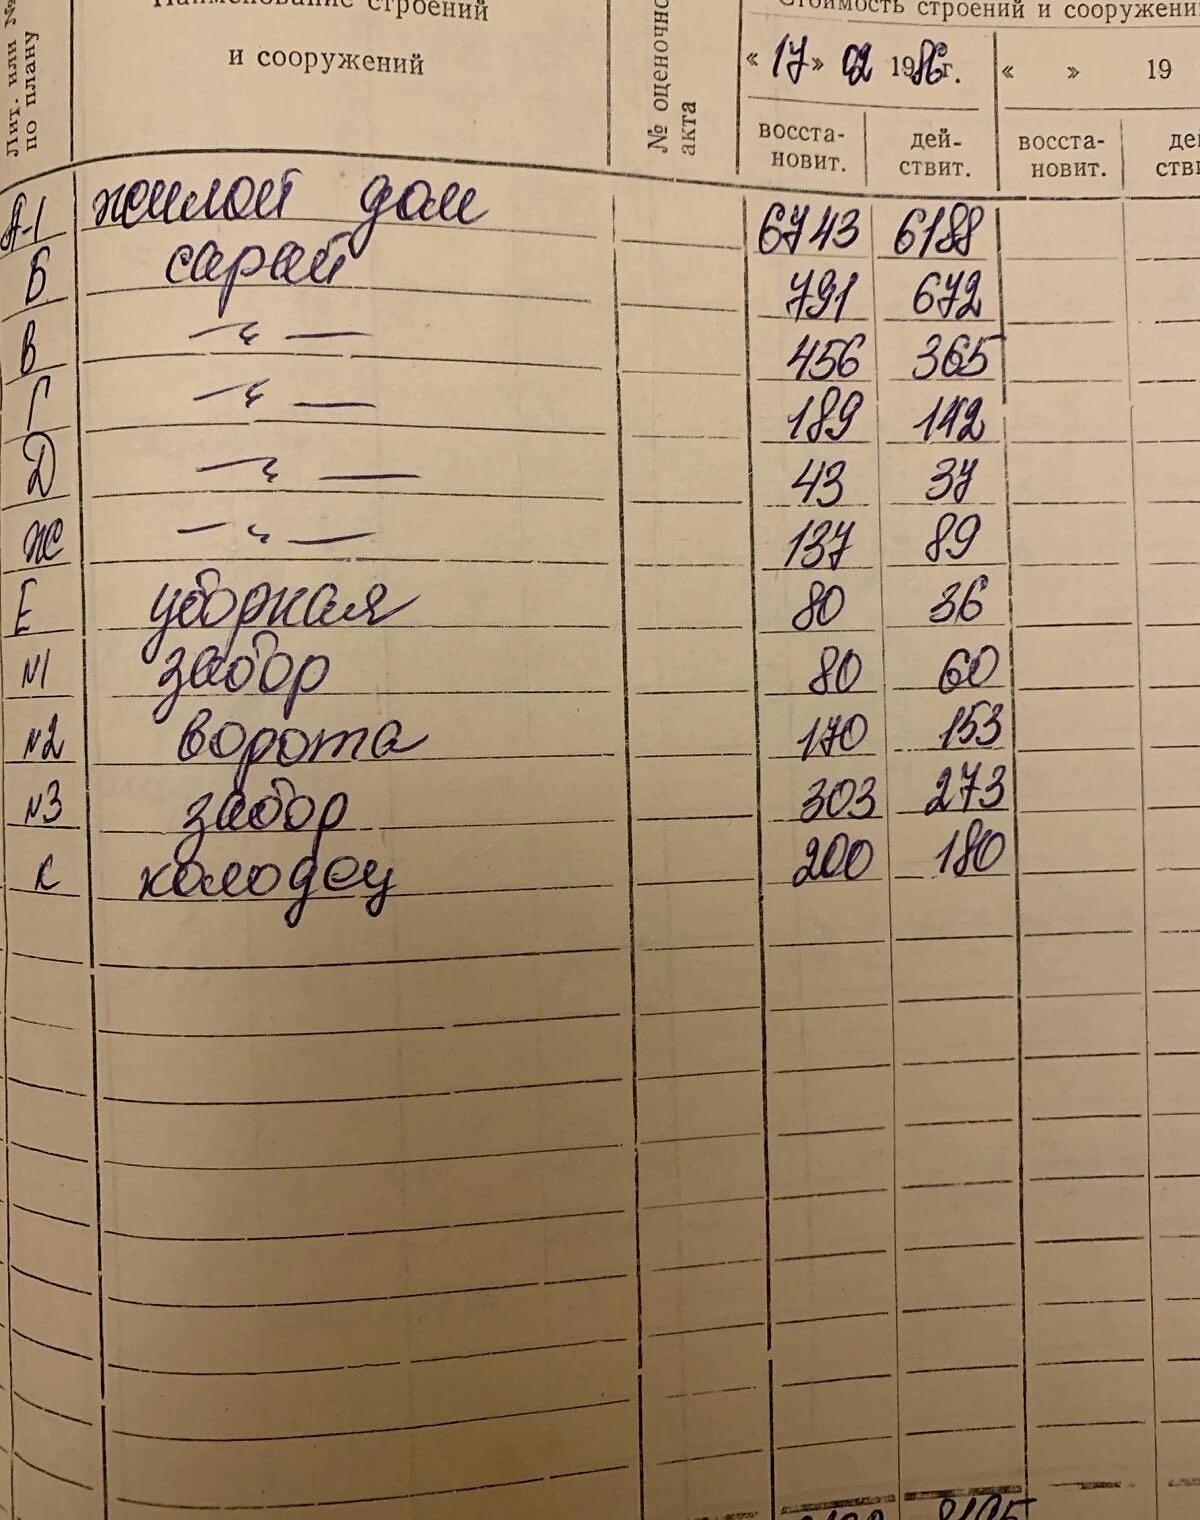 Наименование строений
и сооружений
Лит. или №
по плану
№ оценочно
акта
Стоимость строений и сооружени
« 17 » 02 1986г. « » 19
восста-
новит.
дей-
ствит.
восста-
новит.
де
стви
А-1 жилой дом 6743 6188
Б сарай 791 672
В —〃— 456 365
Г —〃— 189 142
Д —〃— 43 37
Ж —〃— 137 89
Е уборная 80 36
N1 забор 80 60
N2 ворота 170 153
N3 забор 303 273
К колодец 200 180
8195